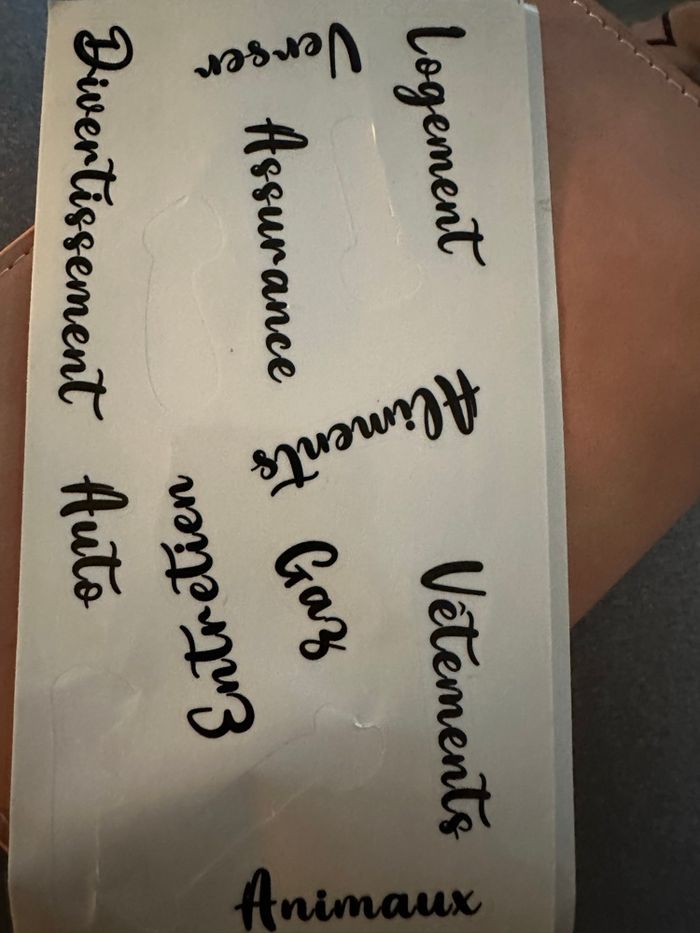 Logement
Assurance
Divertissement
Aliments
Gaz
Entretien
Auto
Vêtements
Animaux